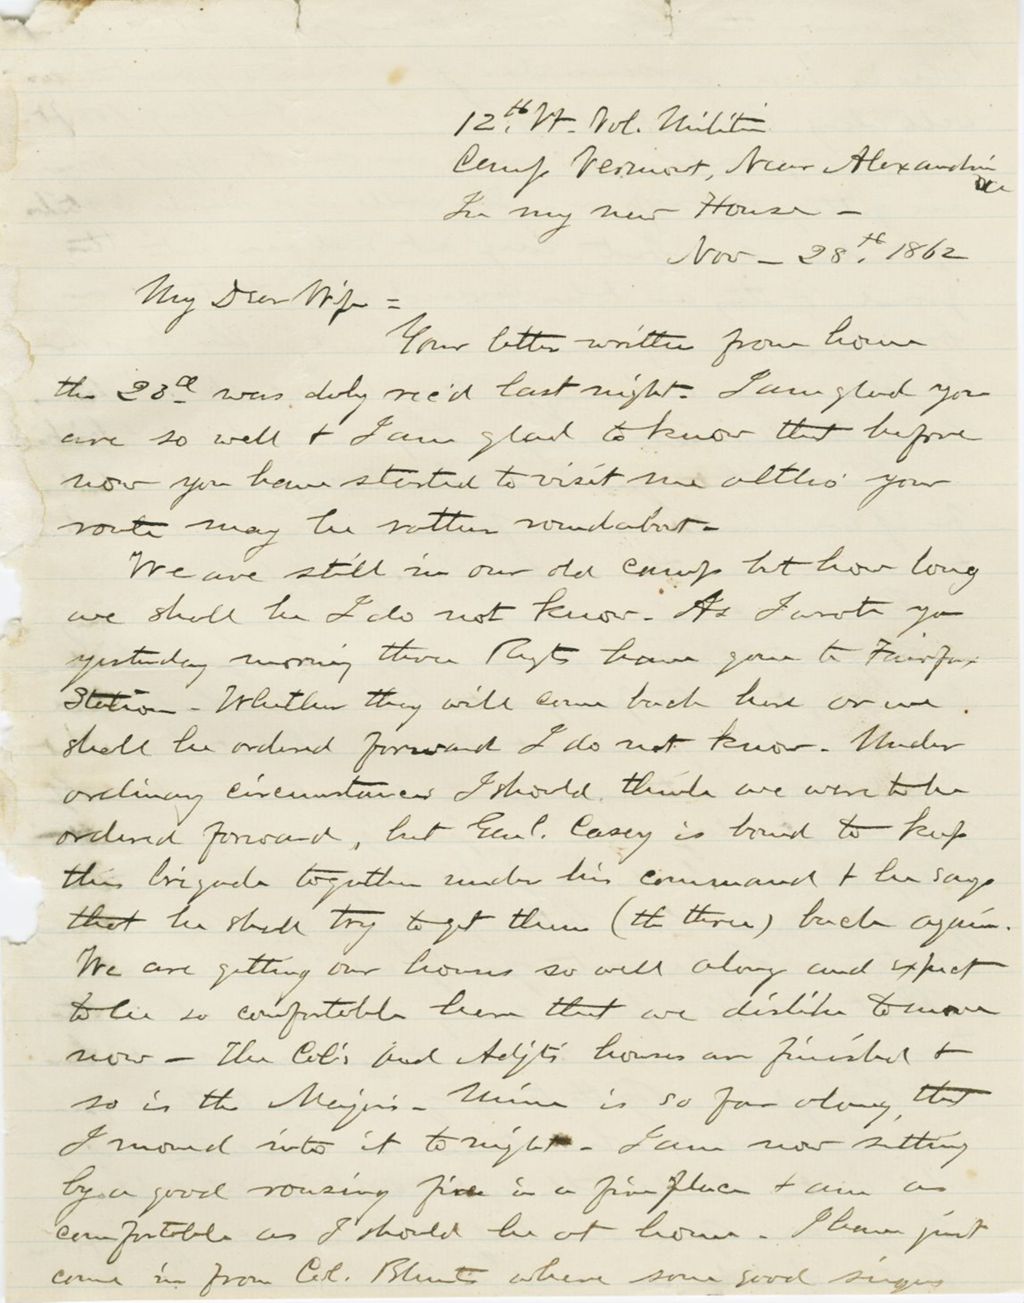 12th. Vt. Vol. Militia
Camp Vermont, Near Alexandria
Va
In my new House -
Nov - 28th. 1862
My Dear Wife =
Your letter written from home
the 23d was duly rec'd last night. I am glad you
are so well & I am glad to know that before
now you have started to visit me altho' your
route may be rather roundabout -
We are still in our old camp but how long
we shall be I do not know. As I wrote you
yesterday morning three Regts have gone to Fairfax
Station - Whether they will come back here or we
shall be ordered forward I do not know. Under
ordinary circumstances I should think we were to be
ordered forward, but Genl. Casey is bound to keep
this brigade together under his command & he says
that he shall try to get them (the three) back again.
We are getting our houses so well along and expect
to be so comfortable here that we dislike to move
now - The Col's and Adjt's houses are finished &
so is the Majors - Mine is so far along, that
I moved into it to night - I am now sitting
by a good rousing fire in a fire place & am as
comfortable as I should be at home - I have just
come in from Col. Blunts where some good singers